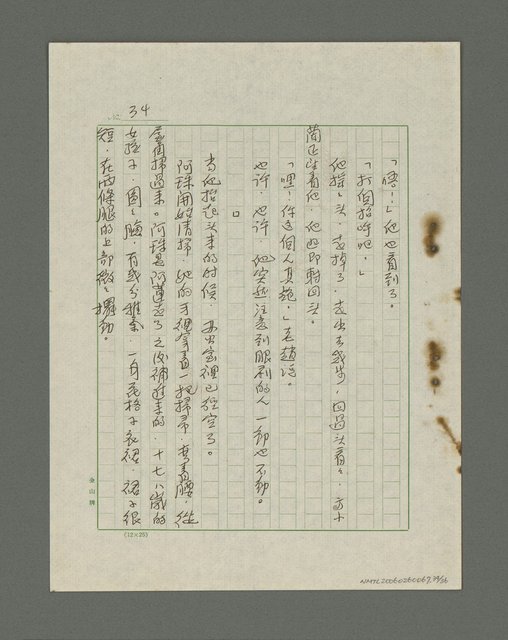 No. 34
「唔！」他也看到了。
「打個招呼吧，」
他搖搖頭，走掉了，走出去幾步，回過頭看看，高小
蘭正望着他，他迅即轉回頭。
「嘿，你這個人真絕，」老趙說。
也許，也許，他突然注意到眼前的人一動也不動。
□
當他抬起頭來的時候，辦公室裡已經空了。
阿珠開始清掃，她的手裡拿着一把掃帚，彎着腰，從
屋角掃過來。阿珠是阿蓮走了之後補進來的，十七八歲的
女孩子，圓圓臉，有幾分雅氣，一身花格子衣裙，裙子很
短，在兩條腿的上部微微擺動。
金山牌
(12×25)
NMTL20060260067